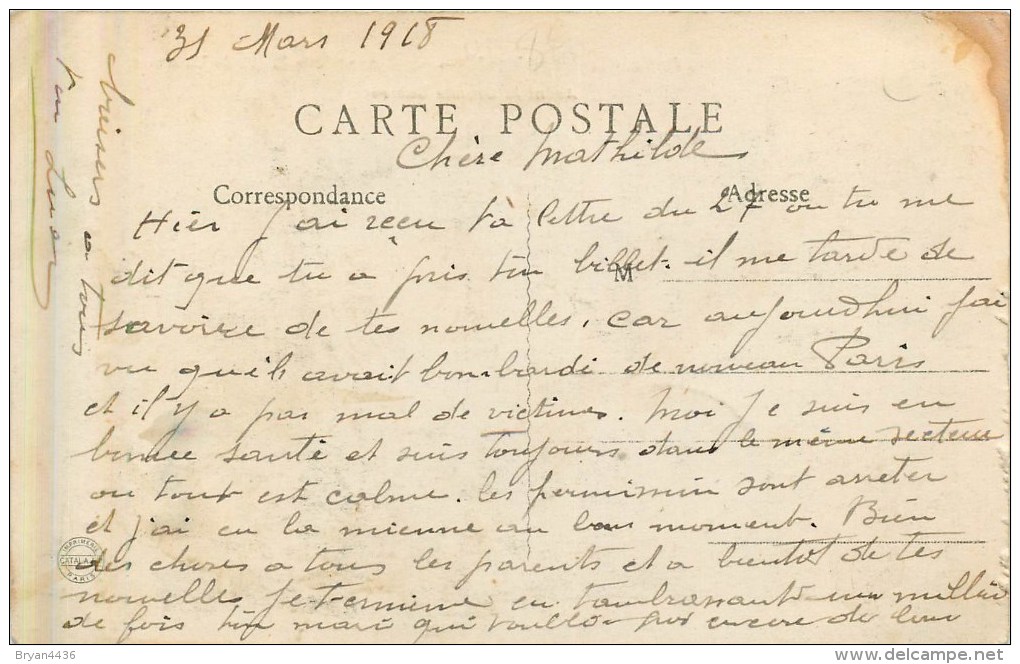 31 Mars 1918
CARTE POSTALE
Chère Mathilde
Correspondance
Adresse
Hier J'ai reçu ta lettre du 27 ou tu me
dit que tu a pris ton billet. il me tarde de
M
savoire de tes nouvelles, car aujourdhui j'ai
vu qu'ils avait bombardi de nouveau Paris
et il y a pas mal de victimes. Moi Je suis en
bonne santé et suis toujours dans le même secteur
ou tout est calme. les permission sont arreter
et j'ai eu la mienne au bon moment. Bien
des choses a tous les parents et a bientot de tes
nouvelles Je termine en t'ambrassant un millier
de fois ton mari qui pas encore de
baisers a tous
ton
IMPRIMERIE
CATALA
PARIS
Bryan4436
http://www.delcampe.net